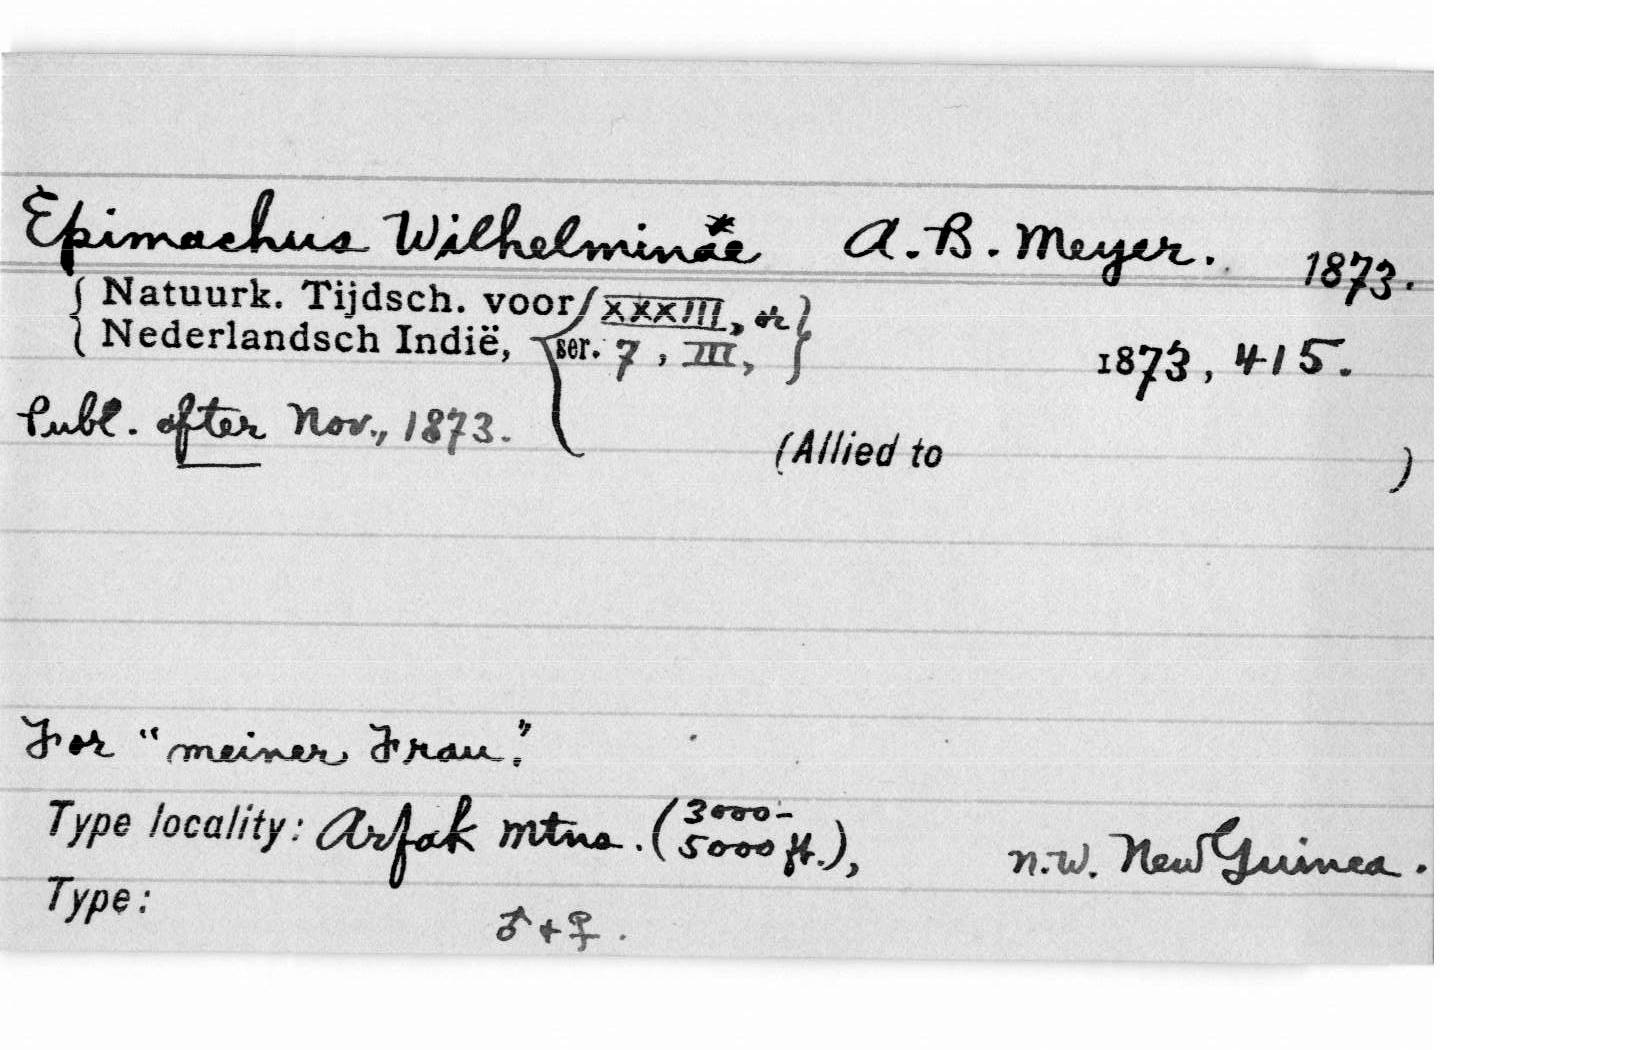 Epimachus Wilhelminae* A. B. Meyer. 1873.
{ Natuurk. Tijdsch. voor { XXXIII, or }
{ Nederlandsch Indië, ser. 7, III, } 1873, 415.
Publ. after Nov., 1873.
(Allied to )
For "meiner Frau".
Type locality: Arfak Mtns. (3000-
5000 ft.), N.W. New Guinea.
Type: ♂ + ♀.